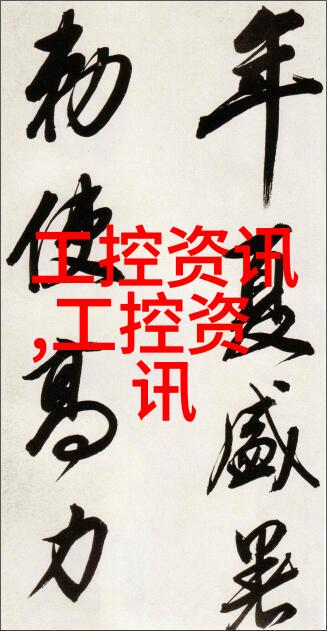 年夏盛暑
勅使高力
工控资讯
,工控资
讯